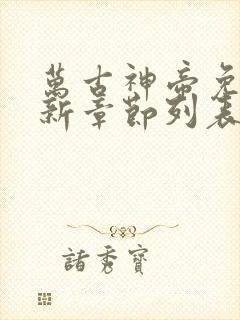 萬古神帝免
新章節列表
諸秀寶